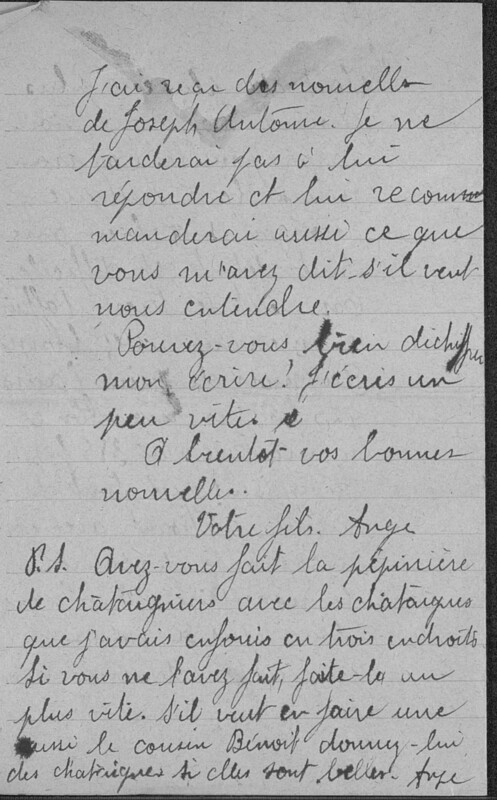 J'ai reçu des nouvelles
de Joseph Antoine. Je ne
tarderai pas à lui
répondre et lui recom
manderai aussi ce que
vous m'avez dit s'il veut
nous entendre.
Pouvez-vous bien déchiffrer
mon écrire! J'écris un
peu vite.
A bientot vos bonnes
nouvelles.
Votre fils. Ange
P.S. Avez-vous fait la pépinière
de châtaigniers avec les chataignes
que j'avais enfouis en trois endroits
Si vous ne l'avez fait, faite-la au
plus vite. S'il veut en faire une
aussi le cousin Bénoit donnez-lui
des chataignes si elles sont belles. Ange